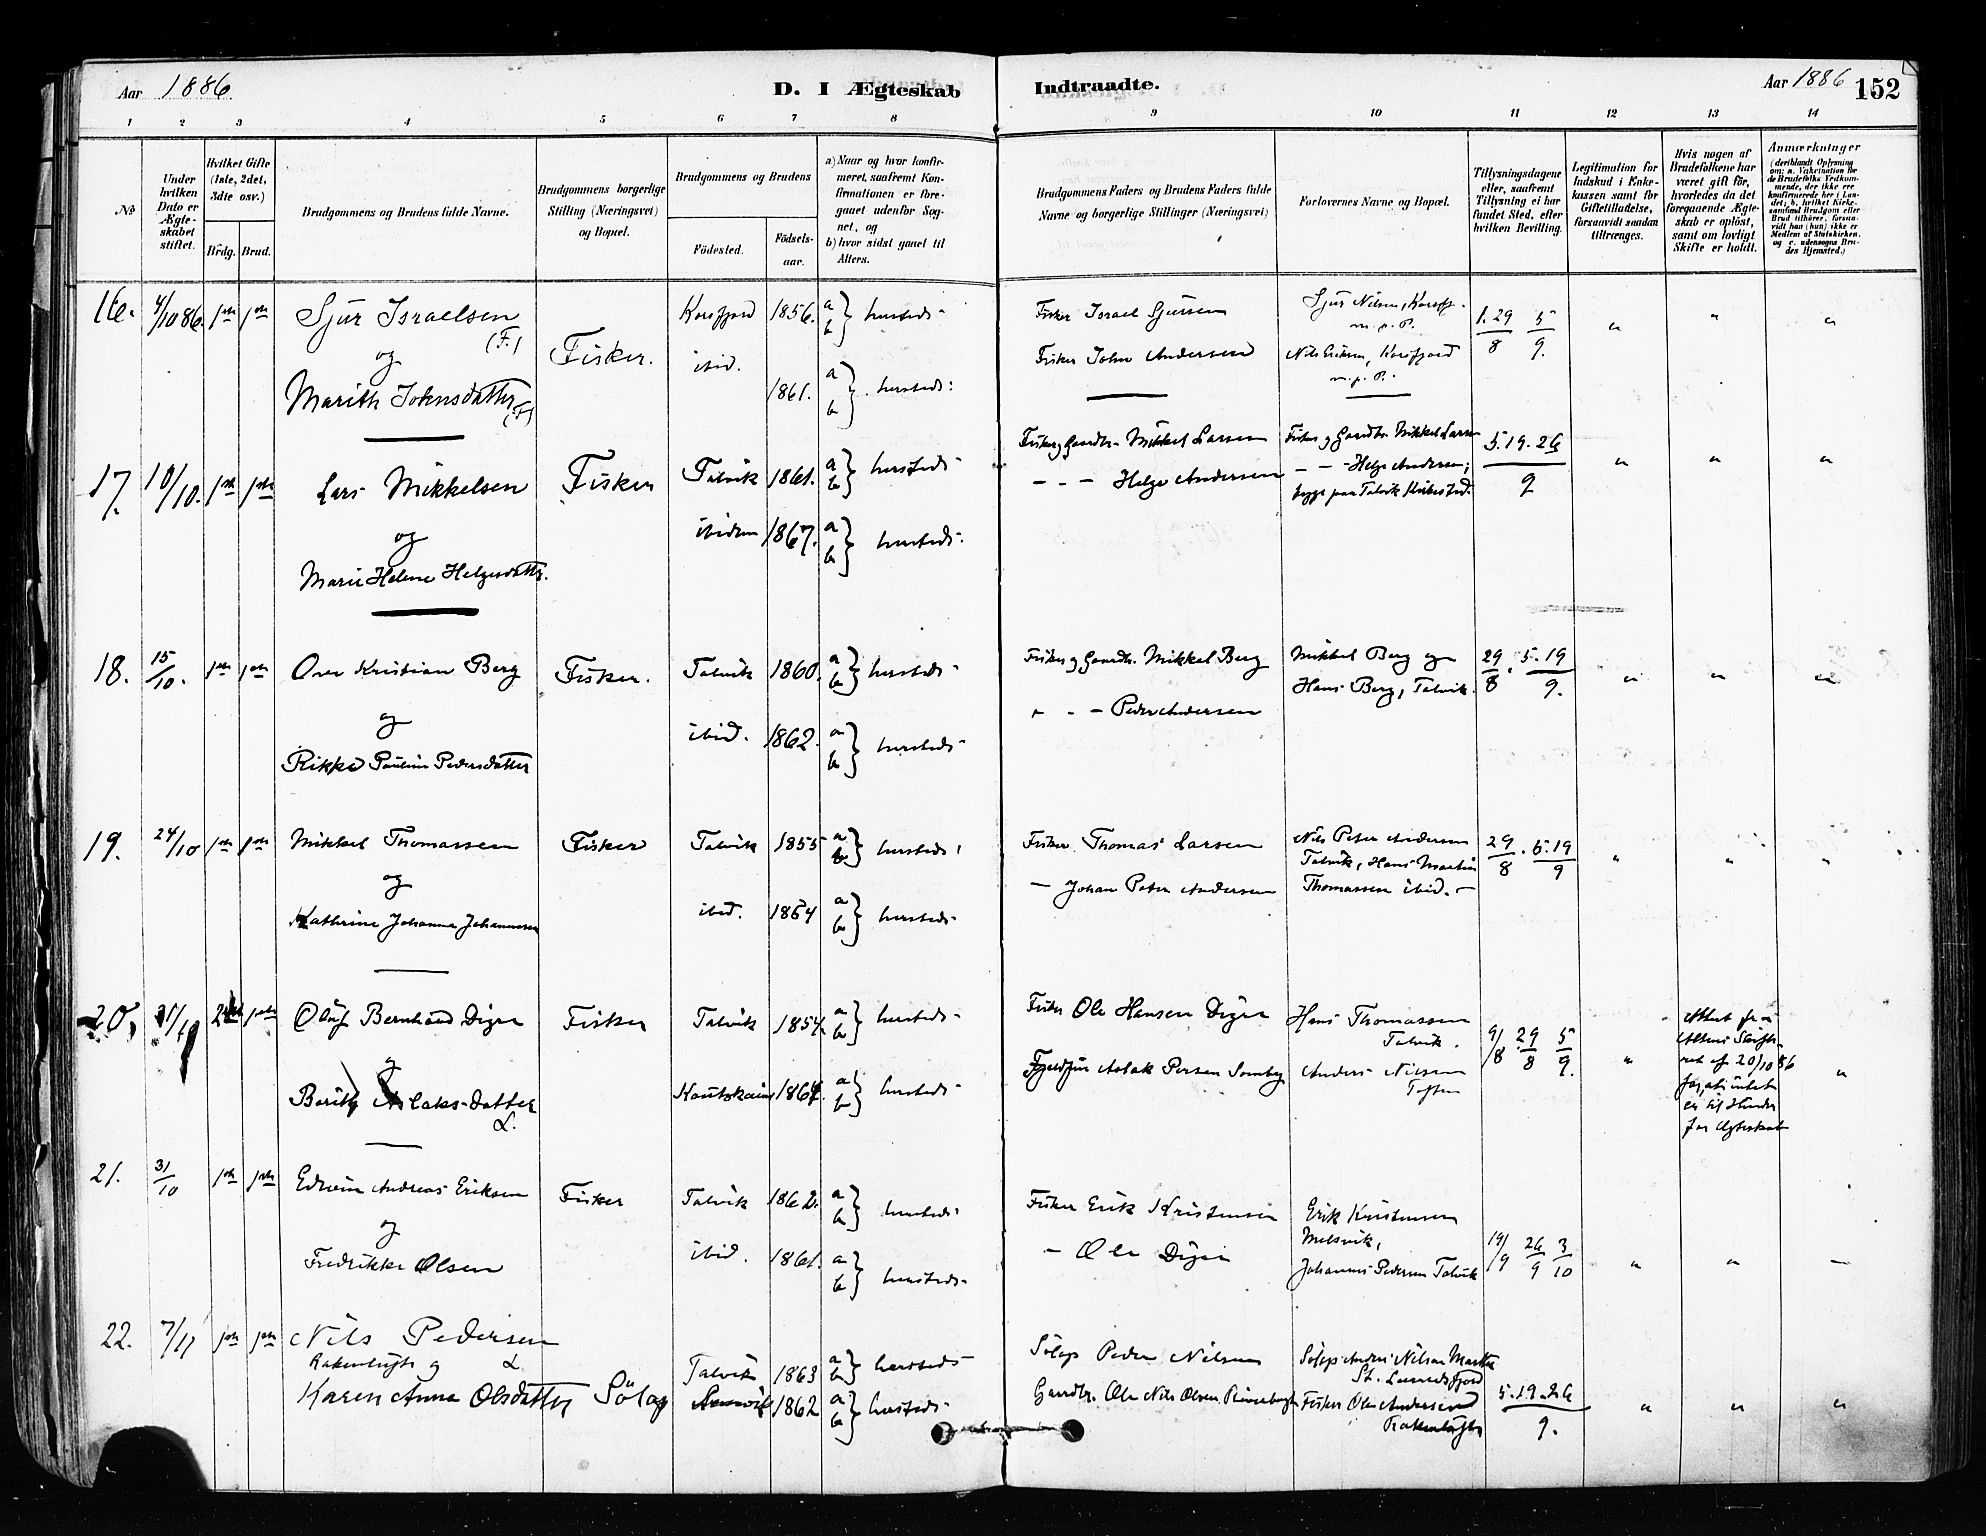 Aar 1886. D. I Ægteskab Indtraadte. Aar 1886 152
1 2 3 4 5 6 7 8 9 10 11 12 13 14
№
Under hvilken Dato er Ægteskabet stiftet.
Hvilket Gifte (1ste, 2det, 3dte osv.)
Brdg. Brud.
Brudgommens og Brudens fulde Navne.
Brudgommens borgerlige Stilling (Næringsvei) og Bopæl.
Brudgommens og Brudens
Födested. Födsels-aar.
a) Naar og hvor konfirmeret, saafremt Konfirmationen er foregaaet udenfor Sognet, og
b) hvor sidst gaaet til Alters.
Brudgommens Faders og Brudens Faders fulde Navne og borgerlige Stillinger (Næringsvei)
Forlovernes Navne og Bopæl.
Tillysningsdagene eller, saafremt Tillysning ei har fundet Sted, efter hvilken Bevilling.
Legitimation for Indskud i Enkekassen samt for Giftetilladelse, forsaavidt saadan tiltrænges.
Hvis nogen af Brudefolkene har været gift för, hvorledes da det foregaaende Ægteskab er oplöst, samt om lovligt Skifte er holdt.
Anmærkninger
16. 4/10 86. Sjur Israelsen (F.) Fisker. Korsfjord 1856. a b } hersteds Fisker Israel Sjursen Sjur Nilsen, Korsfj. m. p. P. 1. 29/8 5/9. " " "
og
Marith Johnsdatter (F) ibid. 1861. a b } hersteds Fisker John Andersen Nils Eriksen, Korsfjord m. p. P.
17. 10/10. Lars Mikkelsen Fisker Talvik 1861. a b } hersteds Fisker og Gaardbr. Mikkel Larsen Fisker og Gaardbr. Mikkel Larsen 5. 19. 26/9 " " "
og
Marie Helene Helgesdattr. ibidem 1867. a b } hersteds - - - Helge Andersen - - Helge Andersen; begge paa Talvik Kirkested.
18. 15/10. Ove Kristian Berg Fisker. Talvik 1860. a b } hersteds Fisker og Gaardbr. Mikkel Berg Mikkel Berg og Hans Berg, Talvik. 29/8. 5. 19/9. " " "
og
Rikke Pauline Pedersdatter ibid. 1862. a b } hersteds - - - Peder Andersen
19. 24/10 Mikkel Thomassen Fisker Talvik 1855 a b } hersteds Fisker Thomas Larsen Nils Peter Andersen Talvik, Hans Martin Thomassen ibid. 29/8. 5. 19/9 " " "
og
Kathrine Johanna Johannesen ibid. 1864 a b } hersteds - Johan Peter Andersen
20. Oluf Bernhard Diger Fisker Talvik 1854 a b } hersteds Fisker Ole Hansen Diger Hans Thomassen Talvik. 9/8 29/8 5/9. " Attest fra Altens Skifteret af 20/10 86 for, at intet er til Hinder for Ægteskab "
og
Berith Aslaks-datter L. Kautokeino 1864. a b } hersteds Fjeldfin Aslak Persen Anders Nilsen Toften
21. 31/10 Edvin Andreas Eriksen Fisker Talvik 1862. a b } hersteds Fisker Erik Kristensen Erik Kristensen Melsvik, 19/9 26/9 3/10 " " —
og
Fredrikke Olsen ibid. 1861. a b } hersteds - Ole Diger Johannes Pedersen Talvik
22. 7/11 Nils Pedersen Talvik 1863 a b } hersteds Sölap Peder Nilsen Sölap Anders Nilsen
og L
Karen Anna Olsdatter Sölap 1862 a b } hersteds Gaardbr. Ole Nils Olsen Fisker Ole Andersen 5. 19. 26/9. " " "